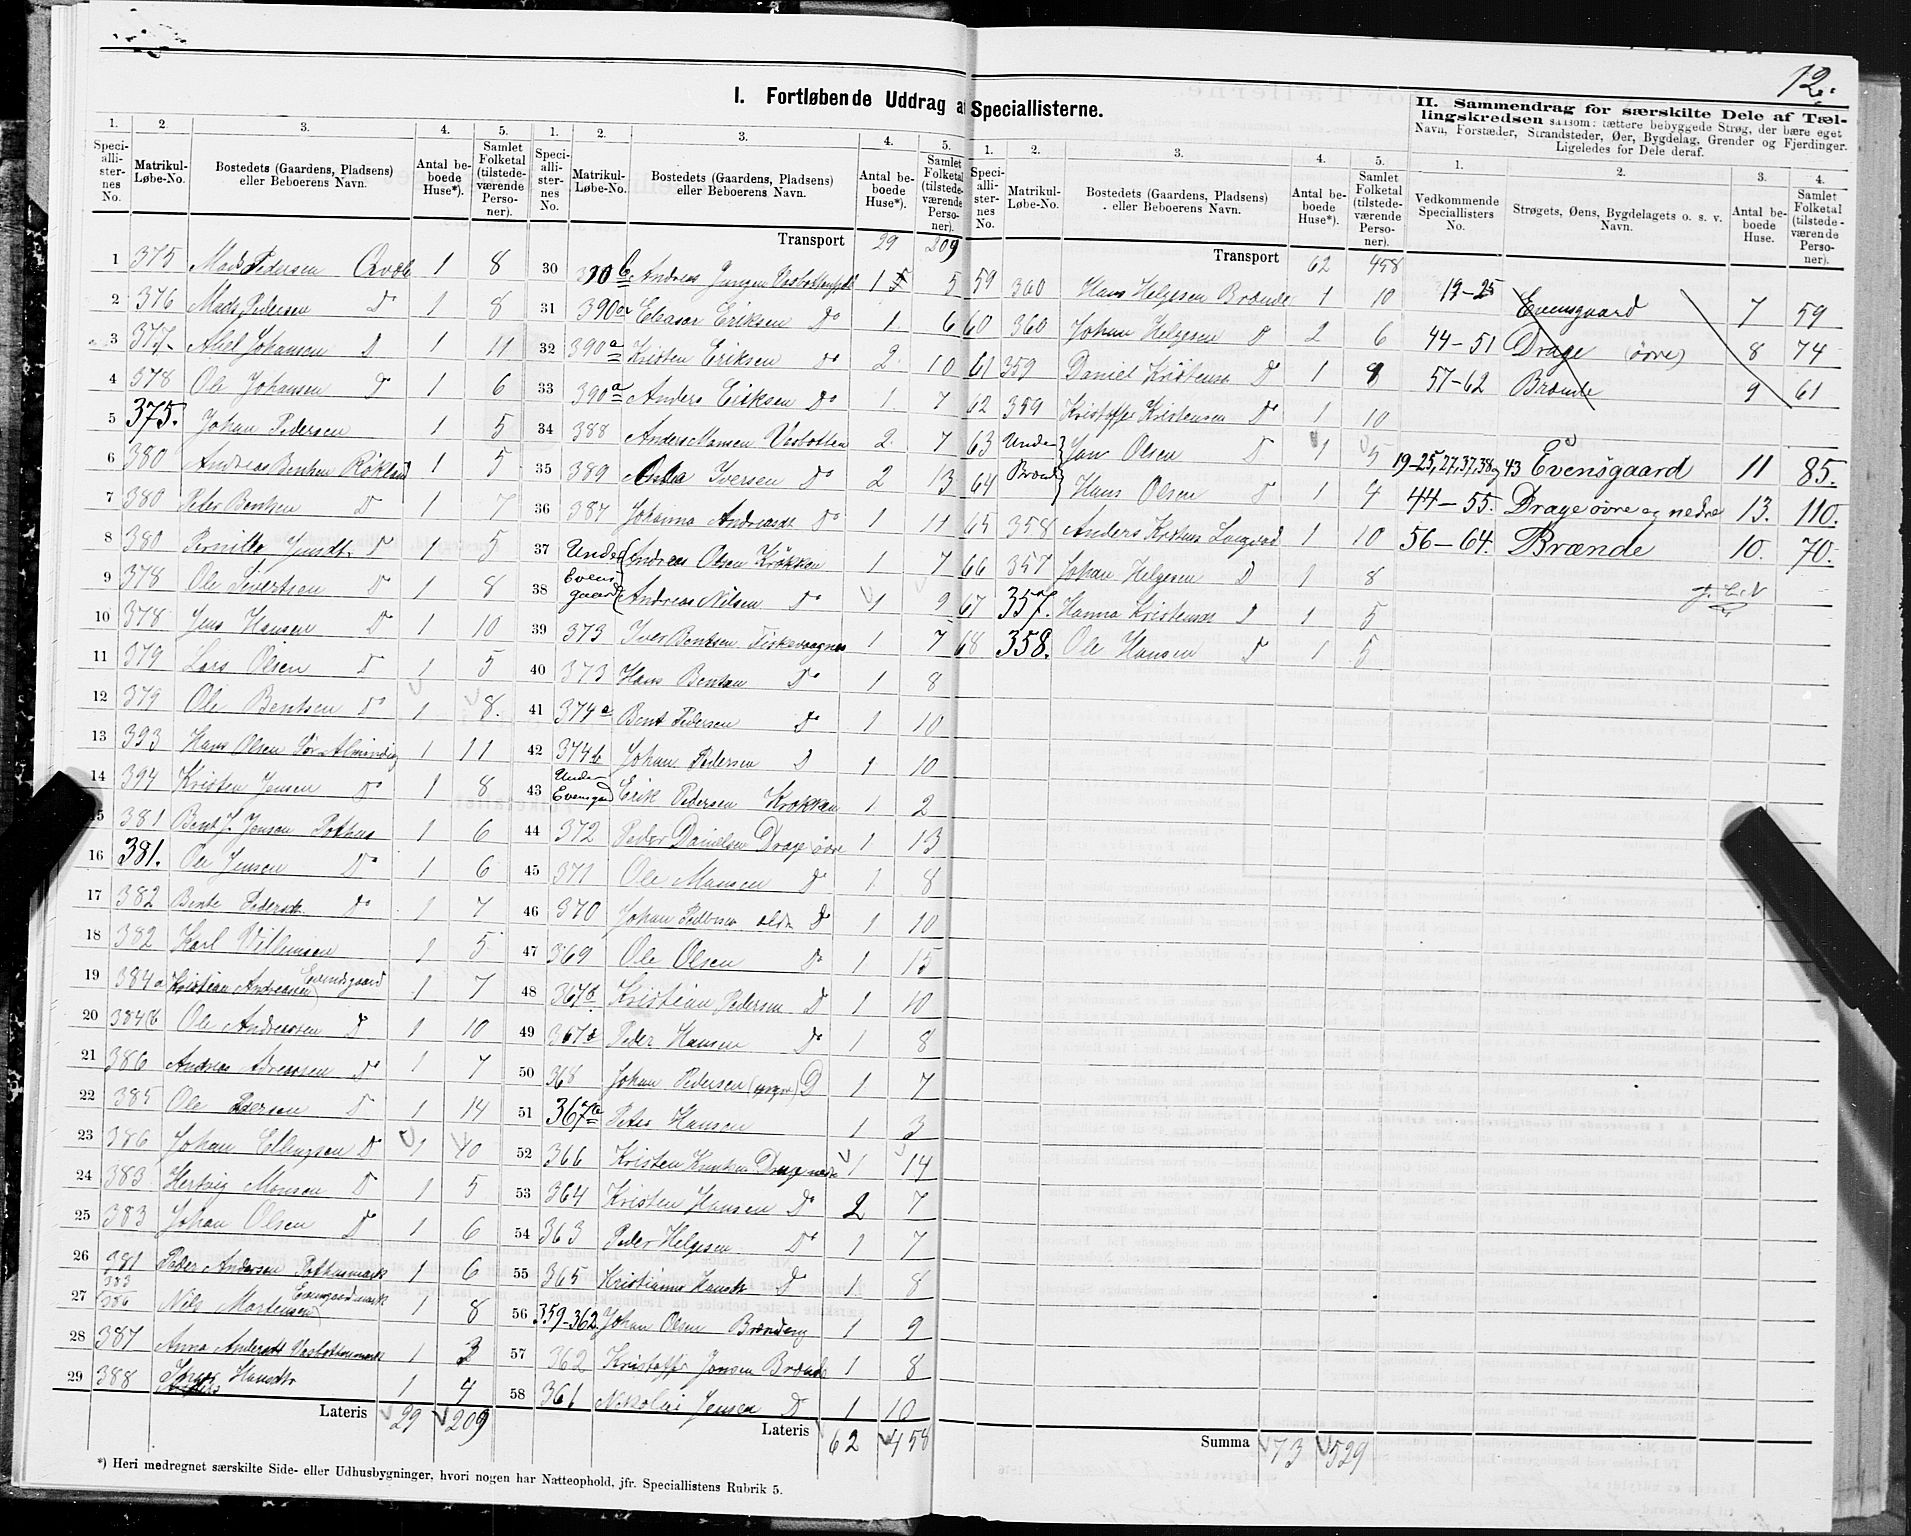 12.
I. Fortløbende Uddrag a Speciallisterne.
II. Sammendrag for særskilte Dele af Tæl-
lingskredsen saasom: tættere bebyggede Strøg, der bære eget
Navn, Forstæder, Strandsteder, Øer, Bygdelag, Grender og Fjerdinger.
Ligeledes for Dele deraf.
1. 2. 3. 4. 5.
Speci-alli-ster-nes No. Matrikul-Løbe-No. Bostedets (Gaardens, Pladsens) eller Beboerens Navn. Antal be-boede Huse*). Samlet Folketal (tilstede-værende Perso-ner).
1 375 Mads Pedersen 1 8
2 376 Mads Pedersen Do 1 8
3 377. Abel Johansen D 1 11
4 378 Ole Johansen D 1 6
5 375. Johan Pedersen 1 5
6 380 Andreas Benthen Røkland 1 5
7 380 Peter Benthen D 1 7
8 380 Pernille D 1 5
9 378 Ole Sivertsen D 1 8
10 378 Jens Hansen Do 1 10
11 379 Lars Olsen D 1 5
12 379 Ole Bentsen Do 1 8.
13 393 Hans Olsen Sør Alminding 1 11
14 394 Kristen Jensen Do 1 8
15 381 Bent J. Jensen Pothus 1 6
16 381. Ole Jensen Do 1 6
17 382 Bente Pedersdt. Do 1 7
18 382 Karl Villumsen 1 5
19 384a Kristian Andreassen Evensgaard 1 7
20 384b Ole Andreassen D 1 10
21 386 Andreas Adreassen Do 1 7
22 385 Ole Pedersen D 1 14
23 386 Johan Ellingsen D 1 10
24 383 Hertvig Monsen D 1 5
25 383 Johan Olsen D 1 6
26 381 Peder Andersen Pothusmark 1 6
27 383 386 Nils Mortensen Evensgaardmark 1 8
28 387 Anna Andersdt Vasbottenmark 1 3
29 388 Hansdtr 1 4
Lateris 29 209
1. 2. 3. 4. 5.
Speci-alli-ster-nes No. Matrikul-Løbe-No. Bostedets (Gaardens, Pladsens) eller Beboerens Navn. Antal be-boede Huse*). Samlet Folketal (tilstede-værende Perso-ner).
Transport 29 209
30 390b Andreas Jensen 1 5
31 390a Eleasar Eriksen Do 1 6
32 390a Kristen Eriksen Do 2 10
33 390a Anders Eriksen Do 1 7
34 388 Anders Monsen Vasbotten 2 7
35 389 Iversen Do 2 13
36 387 Johanna Andreasdt Do 1 11
37 Under Andreas Olsen Krøkken 1 7
38 Evens-gaard Andreas Nilsen Do 1 9
39 373 Iver Bentsen Fiskevaagnes 1 7
40 373 Hans Bentsen Do 1 8
41 374a Bent Pedersen Do 1 10
42 374b Johan Pedersen D 1 10
43 Under Evensgaard Erik Pedersen Krokken 1 2
44 372 Peder Danielsen Drage øvre 1 13
45 371 Ole Monsen Do 1 8
46 370 Johan Pedersen ældr Do 1 10
47 369 Ole Olsen Do 1 15
48 367b. Kristian Pedersen D 1 10
49 367a Peder Hansen Do 1 8
50 368 Johan Pedersen (yngre) D 1 7
51 367b Peter Hanson 1 3
52 366 Kristen Knutsen Drage nedre 1 14
53 364 Kristen Hansen Do 2 7
54 363 Peder Helgesen Do 1 7
55 365 Kristianna Hansdt D 1 8
56 359-362 Johan Olsen Brændeng 1 9
57 362 Kristoffer Jonsen Brænde 1 8
58 361 Nikolai Jensen D 1 10
Lateris 62 458
1. 2. 3. 4. 5.
Speci-alli-ster-nes No. Matrikul-Løbe-No. Bostedets (Gaardens, Pladsens) eller Beboerens Navn. Antal be-boede Huse*). Samlet Folketal (tilstede-værende Perso-ner).
Transport 62 458
59 360 Hans Helgesen Brænde 1 10
60 360 Johan Helgesen D 2 6
61 359 Daniel Kristensen D 1 8
62 359 Kristoffer Kristensen D 1 10
63 Under Jon Olsen D 1 5
64 Brænd Hans Olsen D 1 4
65 358 Anders Kristens 1 10
66 357 Johan Helgesen D 1 8
67 357. Hanna Kristensen D 1 5
68 358. Ole Hansen D 1 5
Summa 73 529
1. 2. 3. 4.
Vedkommende Speciallisters No. Strøgets, Øens, Bygdelagets o. s. v. Navn. Antal be-boede Huse. Samlet Folketal (tilstede-værende Perso-ner).
19-25 Evensgaard 7 59
44-51 Drage (øvre) 8 74
57-62 Brænde 9 61
19-25, 27, 37, 38 og 43 Evensgaard 11 85.
44-55. Drage øvre og nedre 13. 110.
56-64. Brænde 10. 70.
*) Heri medregnet særskilte Side- eller Udhusbygninger, hvori nogen har Natteophold, jfr. Speciallistens Rubrik 5.